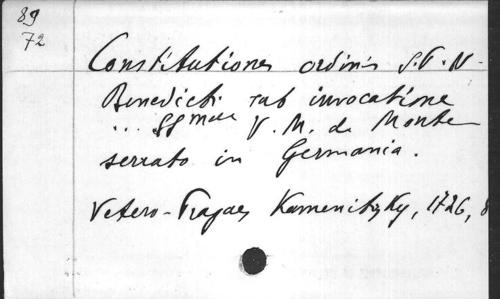 89
72
Constitutiones ordinis S. P. N.
Benedicti sub invocatione
... SSmae V. M. de Monte
serrato in Germania.
Vetero-Pragae Kamenitzky, 1726, 8